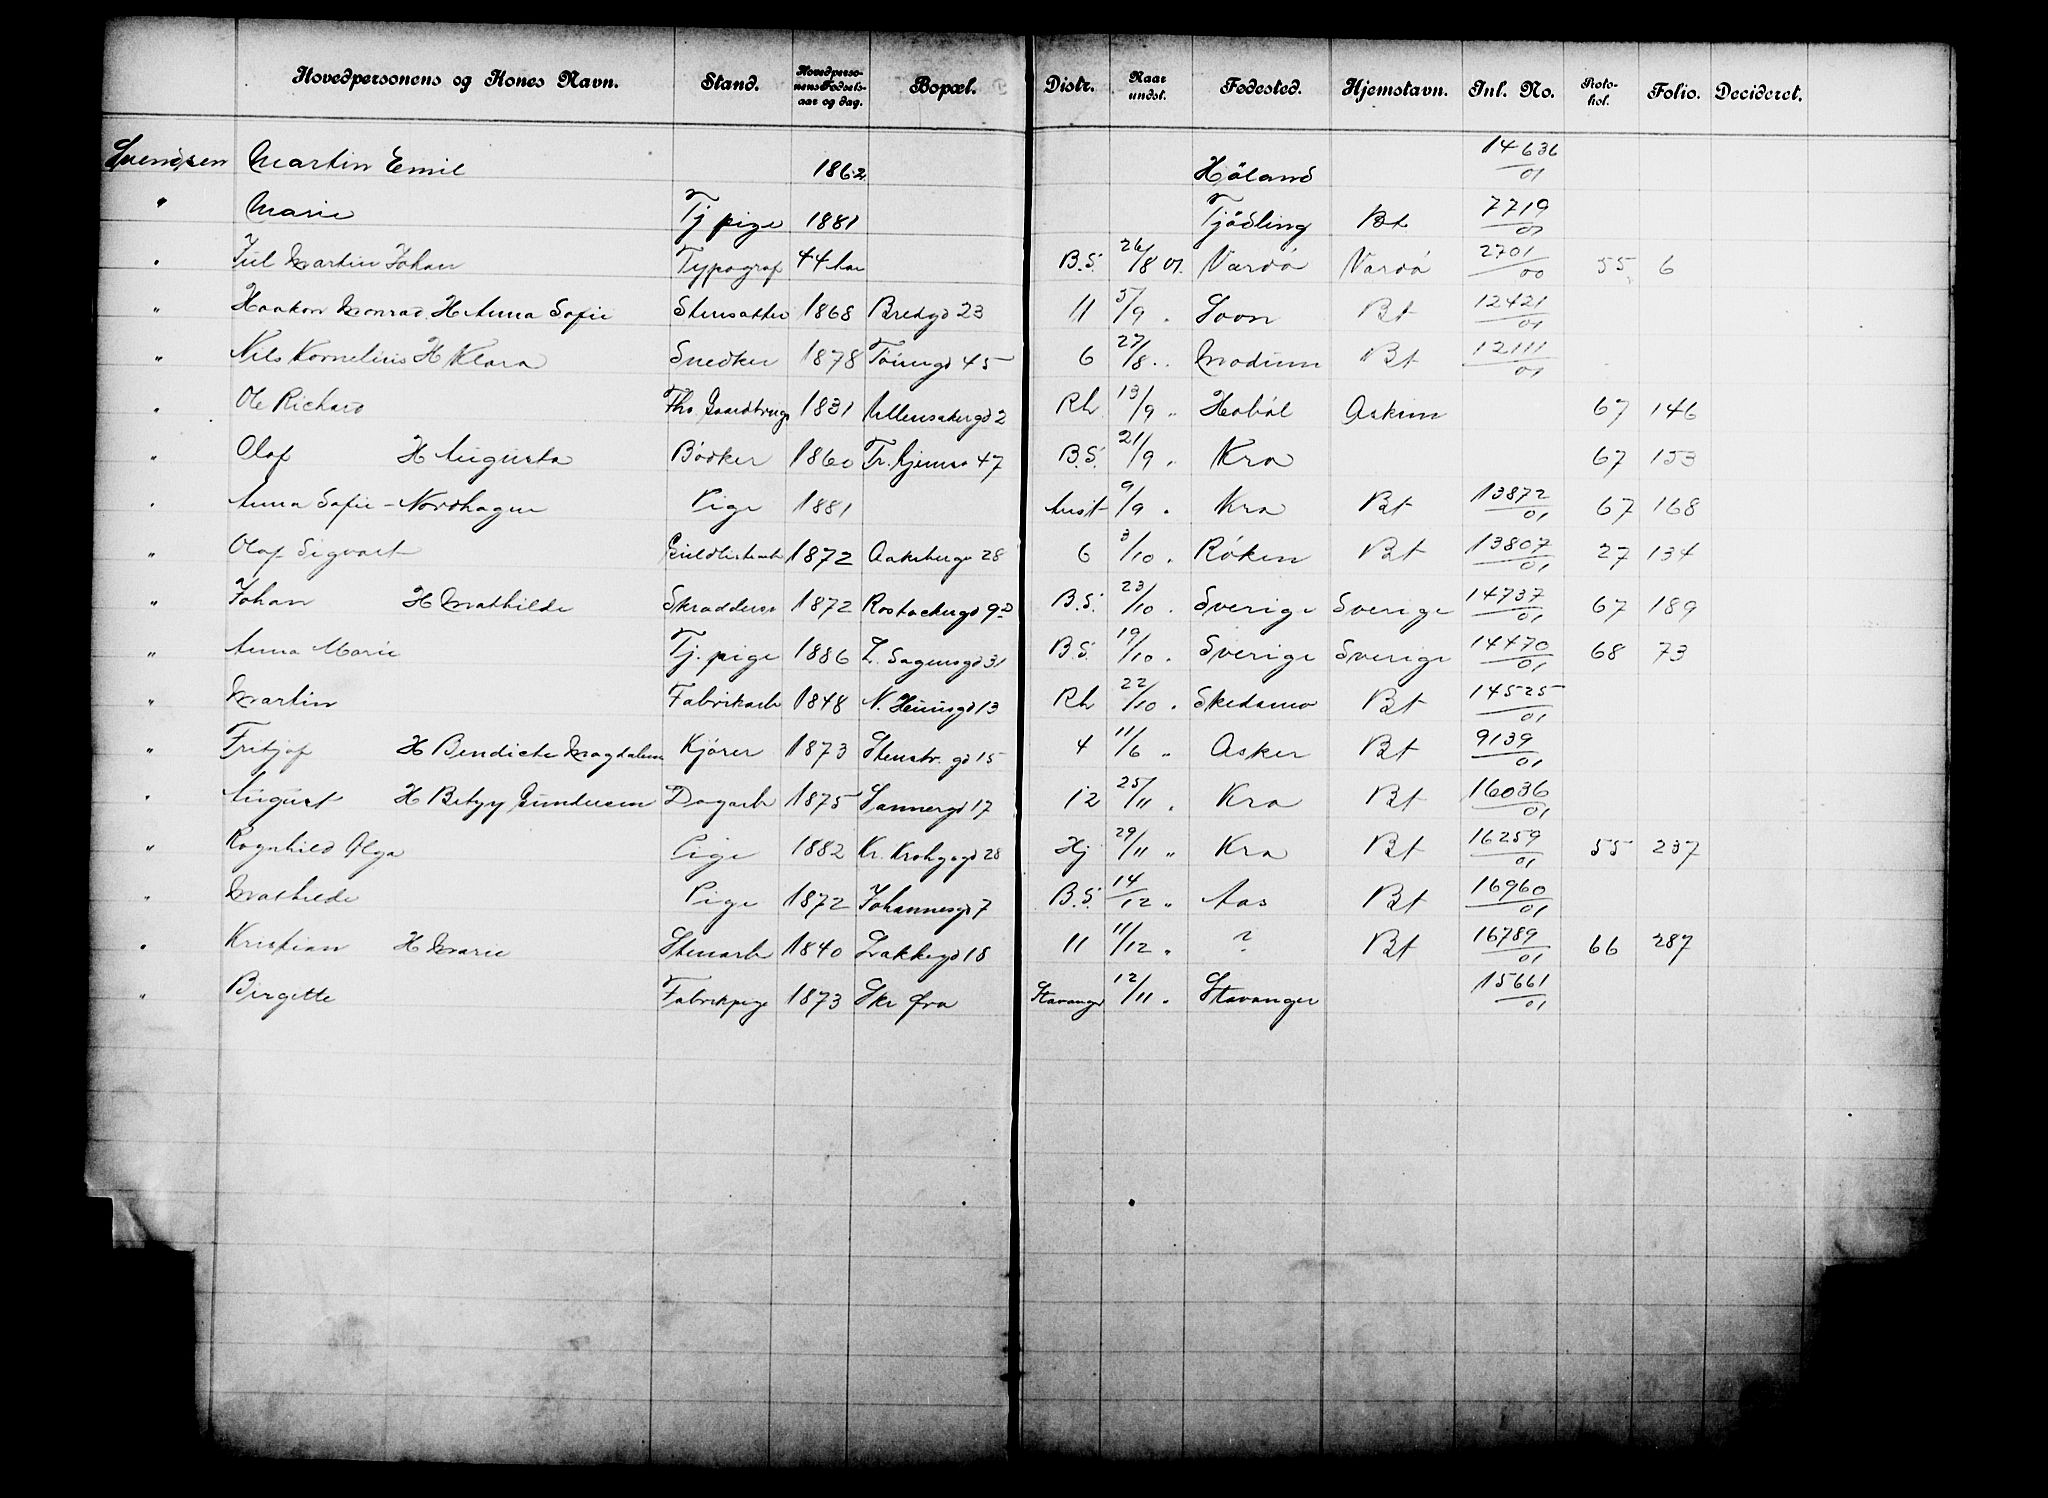 Hovedpersonens og Kones Navn. Stand. Hovedpersonens Fødselsaar og dag. Bopæl. Distr. Naar undst. Fødested. Hjemstavn. Inl. No. Protokol. Folio. Decideret.
Svendsen Martin Emil 1862 Høland 14636/01
" Marie Tj pige 1881 Tjødling Bt 7719/01
" Juel Martin Johan Typograf 44 Aar B.S. 26/8 01. Vardø Vardø 2701/00 55 6
" Haakon Monrad. H Anna Sofie 1868 Bredgd 23 11 5/9 " Soon Bt 12421/01
" Nils Kornelius H Klara Snedker 1878 Tøiengd 45 6 27/8 " Modum Bt 12111/01
" Ole Richard Fhv. Gaardbrug 1831 Ullensakergd 2 Rh 13/9 " Hobøl Askim 67 146
" Olaf H Augusta Bødker 1860 Tr. hjemsv 47 B.S. 21/9 " Kra 67 153
" Anna Sofie - Nordhagen Pige 1881 Anst 9/9 " Kra Bt 13872/01 67 168
" Olaf Sigvart 1872 Aakebergv 28 6 3/10 " Røken Bt 13807/01 27 134
" Johan H Mathilde Skræddersv 1872 Rostockergd 9 B.S. 23/10 " Sverige Sverige 14737/01 67 189
" Anna Marie Tj. pige 1886 Z. Sagensgd 31 B.S. 19/10 " Sverige Sverige 14470/01 68 73
" Martin Fabrikarb 1848 N. Heimsgd 13 Rh 22/10 " Skedsmo Bt 14525/01
" Fritjof H Bendicte Magdalene Kjører 1873 Stenstr. gd 15 4 11/6 " Asker Bt 9139/01
" August H Betzy Gundersen Dagarb 1875 Sannergd 17 12 25/11 " Kra Bt 16036/01
" Ragnhild Olga Pige 1882 Kr. Krohgsgd 28 Hj 29/11 " Kra Bt 16259/01 55 237
" Mathilde Pige 1872 Johannesgd 7 B.S. 14/12 " Aas Bt 16960/01
" Kristian H Marie Stenarb 1840 Lakkegd 18 11 11/12 " ? Bt 16789/01 66 287
" Birgette Fabrikpige 1873 Skr fra Stavanger 12/11 " Stavanger 15661/01